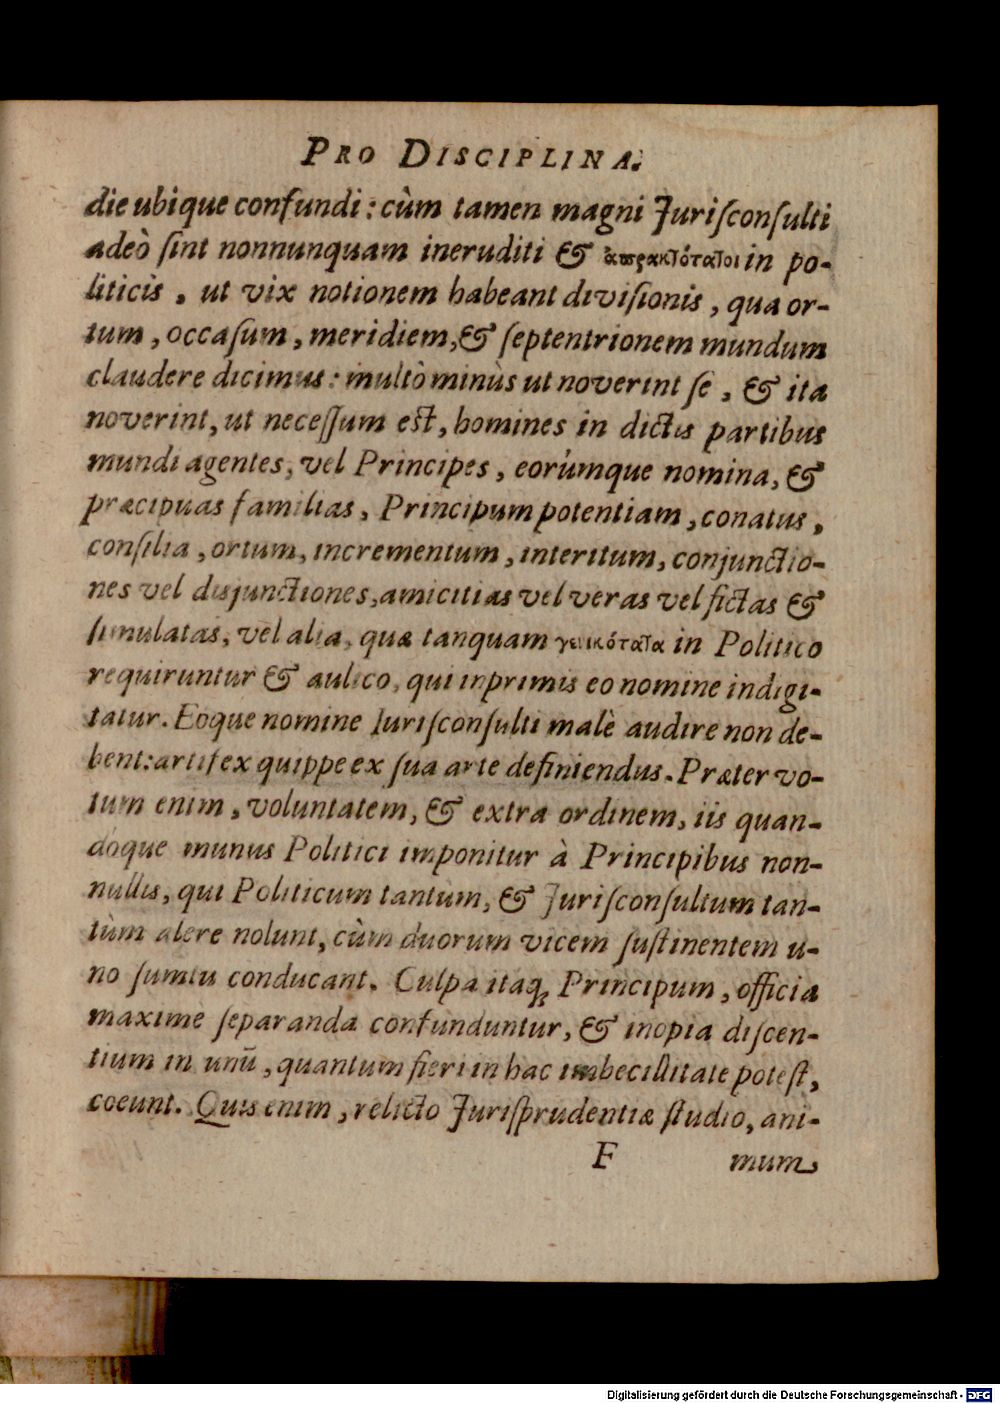 PRO DISCIPLINA.
die ubique confundi: cùm tamen magni Juriſconſulti
adeò ſint nonnunquam ineruditi & ἀπρακτότατοι in po-
liticis, ut vix notionem habeant diviſionis, qua or-
tum, occaſum, meridiem, & ſeptentrionem mundum
claudere dicimus: multò minùs ut noverint ſe, & ita
noverint, ut neceſſum eſt, homines in dictis partibus
mundi agentes, vel Principes, eorúmque nomina, &
præcipuas familias, Principum potentiam, conatus,
conſilia, ortum, incrementum, interitum, conjunctio-
nes vel disjunctiones, amicitias vel veras vel fictas &
ſimulatas, vel alia, quæ tanquam γενικότατα in Politico
requiruntur & aulico, qui inprimis eo nomine indigi-
tatur. Eoque nomine Iuriſconſulti malè audire non de-
bent: artifex quippe ex ſua arte definiendus. Præter vo-
tum enim, voluntatem, & extra ordinem, iis quan-
doque munus Politici imponitur à Principibus non-
nullis, qui Politicum tantùm, & Juriſconſultum tan-
tùm alere nolunt, cùm duorum vicem ſuſtinentem u-
no ſumtu conducant. Culpa itaq; Principum, officia
maximè ſeparanda confunduntur, & inopia diſcen-
tium in unū, quantum fieri in hac imbecillitate poteſt,
coeunt. Quis enim, relicto Juriſprudentiæ ſtudio, ani-
F mum
Digitalisierung gefördert durch die Deutsche Forschungsgemeinschaft - DFG